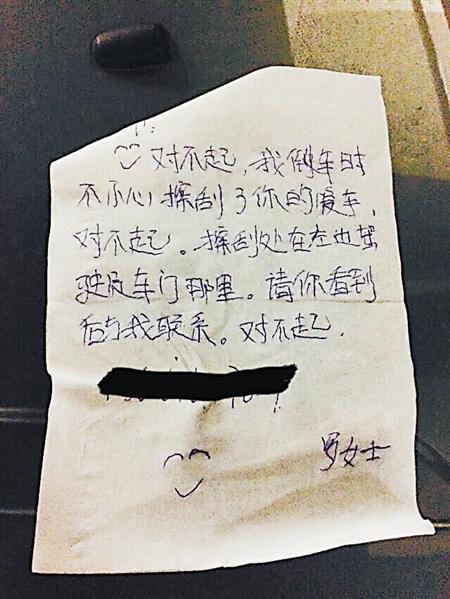 对不起,我倒车时
不小心擦刮了你的爱车,
对不起。擦刮处在左边驾
驶及车门那里。请你看到
后与我联系。对不起.
罗女士